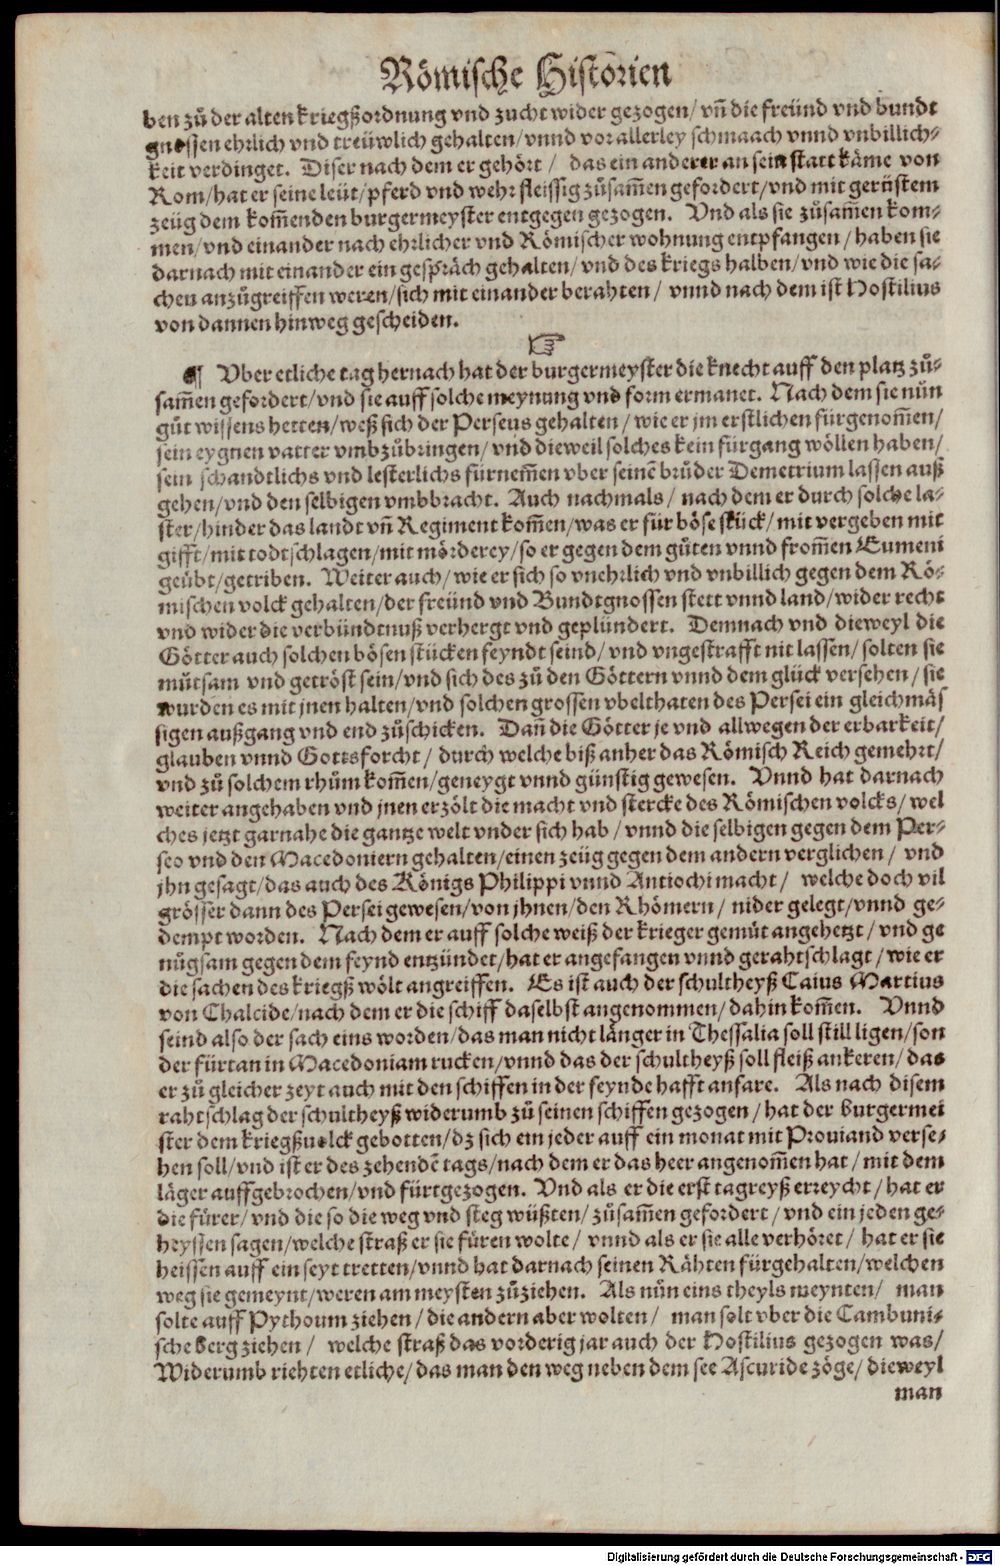 Römische Historien
ben zů der alten kriegßordnung vnd zucht wider gezogen/ vñ die freünd vnd bundt
gnossen ehrlich vnd treüwlich gehalten/ vnnd vor allerley schmaach vnnd vnbillich-
keit verdinget. Diser nach dem er gehört / das ein anderer an sein statt käme von
Rom/ hat er seine leüt/ pferd vnd wehr fleissig zůsam̃en gefordert/ vnd mit gerüstem
zeüg dem kom̃enden burgermeyster entgegen gezogen. Vnd als sie zůsam̃en kom-
men/ vnd einander nach ehrlicher vnd Römischer wohnung entpfangen / haben sie
darnach mit einander ein gespräch gehalten/ vnd des kriegs halben/ vnd wie die sa-
chen anzůgreiffen weren/ sich mit einander berahten / vnnd nach dem ist Hostilius
von dannen hinweg gescheiden.
☞
¶ Vber etliche tag hernach hat der burgermeyster die knecht auff den platz zů-
sam̃en gefordert/ vnd sie auff solche meynung vnd form ermanet. Nach dem sie nůn
gůt wissens hetten/ weß sich der Perseus gehalten / wie er jm erstlichen fürgenom̃en/
sein eygnen vatter vmbzůbringen/ vnd dieweil solches kein fürgang wöllen haben/
sein schandtlichs vnd lesterlichs fürnem̃en vber seinẽ brůder Demetrium lassen auß
gehen/ vnd den selbigen vmbbracht. Auch nachmals / nach dem er durch solche la-
ster/ hinder das landt vñ Regiment kom̃en/ was er für böse stück/ mit vergeben mit
gifft/ mit todtschlagen/ mit mörderey/ so er gegen dem gůten vnnd from̃en Eumeni
geübt/ getriben. Weiter auch/ wie er sich so vnehrlich vnd vnbillich gegen dem Rö-
mischen volck gehalten/ der freünd vnd Bundtgnossen stett vnnd land/ wider recht
vnd wider die verbündtnuß verhergt vnd geplündert. Demnach vnd dieweyl die
Götter auch solchen bösen stücken feyndt seind/ vnd vngestrafft nit lassen/ solten sie
můtsam vnd getröst sein/ vnd sich des zů den Göttern vnnd dem glück versehen/ sie
wurden es mit jnen halten/ vnd solchen grossen vbelthaten des Persei ein gleichmäs
sigen außgang vnd end zůschicken. Dañ die Götter je vnd allwegen der erbarkeit/
glauben vnnd Gottsforcht / durch welche biß anher das Römisch Reich gemehrt/
vnd zů solchem rhům kom̃en/ geneygt vnnd günstig gewesen. Vnnd hat darnach
weiter angehaben vnd jnen erzölt die macht vnd stercke des Römischen volcks/ wel
ches jetzt garnahe die gantze welt vnder sich hab / vnnd die selbigen gegen dem Per-
seo vnd den Macedoniern gehalten/ einen zeüg gegen dem andern verglichen / vnd
jhn gesagt/ das auch des Königs Philippi vnnd Antiochi macht / welche doch vil
grösser dann des Persei gewesen/ von jhnen/ den Rhömern / nider gelegt/ vnnd ge-
dempt worden. Nach dem er auff solche weiß der krieger gemůt angehetzt / vnd ge
nůgsam gegen dem feynd entzündet/ hat er angefangen vnnd gerahtschlagt / wie er
die sachen des kriegß wölt angreiffen. Es ist auch der schultheyß Caius Martius
von Chalcide/ nach dem er die schiff daselbst angenommen/ dahin kom̃en. Vnnd
seind also der sach eins worden/ das man nicht länger in Thessalia soll still ligen/ son
der fürtan in Macedoniam rucken/ vnnd das der schultheyß soll fleiß ankeren/ das
er zů gleicher zeyt auch mit den schiffen in der feynde hafft anfare. Als nach disem
rahtschlag der schultheyß widerumb zů seinen schiffen gezogen / hat der burgermei
ster dem kriegßuolck gebotten/ dz sich ein jeder auff ein monat mit Prouiand verse-
hen soll/ vnd ist er des zehendẽ tags/ nach dem er das heer angenom̃en hat / mit dem
läger auffgebrochen/ vnd fürtgezogen. Vnd als er die erst tagreyß erreycht / hat er
die fürer/ vnd die so die weg vnd steg wüßten/ zůsam̃en gefordert / vnd ein jeden ge-
heyssen sagen/ welche straß er sie füren wolte / vnnd als er sie alle verhöret / hat er sie
heissen auff ein seyt tretten/ vnnd hat darnach seinen Rähten fürgehalten/ welchen
weg sie gemeynt/ weren am meysten zůziehen. Als nůn eins theyls meynten / man
solte auff Pythoum ziehen / die andern aber wolten / man solt vber die Cambuni-
sche berg ziehen / welche straß das vorderig jar auch der Hostilius gezogen was/
Widerumb riehten etliche/ das man den weg neben dem see Ascuride zöge/ dieweyl
man
Digitalisierung gefördert durch die Deutsche Forschungsgemeinschaft - DFG